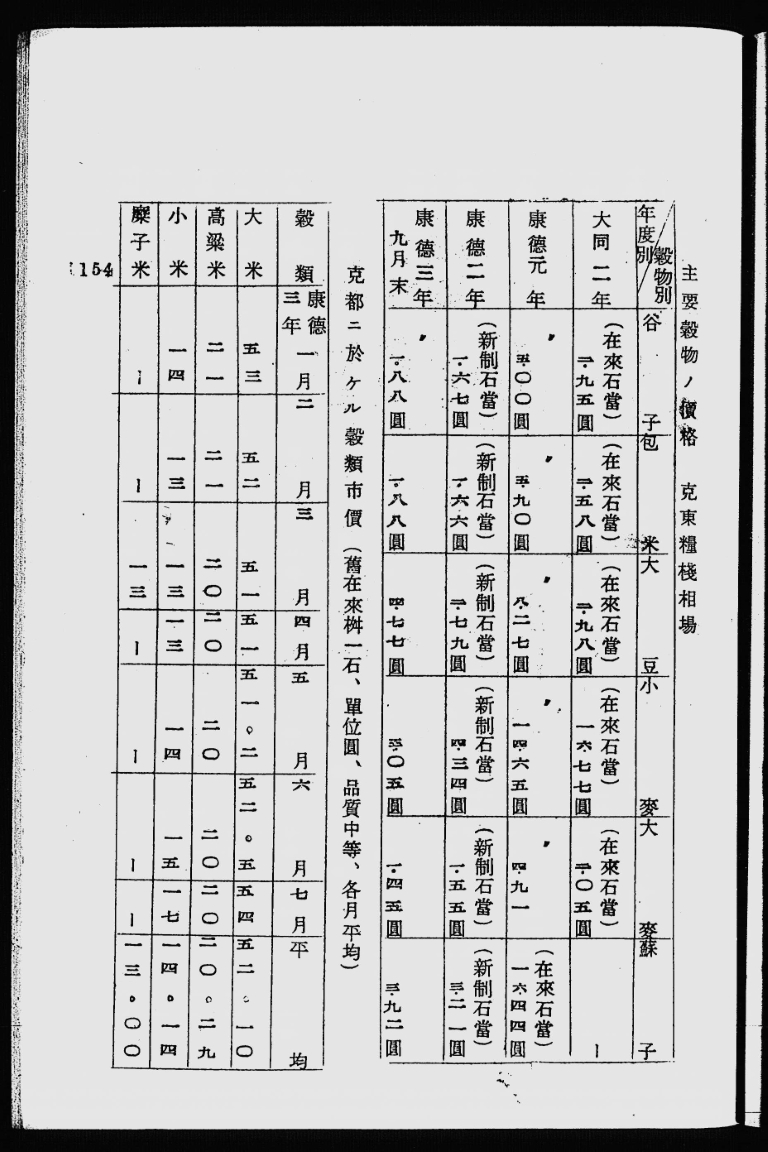 主要穀物ノ價格 克東糧棧相場
年度別 穀物別 谷子 包米 大豆 小麥 大麥 蘇子
大同二年 (在來石當) (在來石當) (在來石當) (在來石當) (在來石當) ー
二・九五圓 二・五八圓 二・九八圓 一六・七七圓 二・〇五圓
康德元年 〃 〃 〃 〃 〃 (在來石當)
五・〇〇圓 五・九〇圓 八・二七圓 一四・六五圓 四・九一 一六・四四圓
康德二年 (新制石當) (新制石當) (新制石當) (新制石當) (新制石當) (新制石當)
一・六七圓 一・六六圓 二・七九圓 四・三四圓 一・五五圓 三・二一圓
康德三年 〃
九月末 一・八八圓 一・八八圓 四・七七圓 ・〇五圓 一・四五圓 三・九二圓
克都ニ於ケル穀類市價(舊在來桝一石、單位圓、品質中等、各月平均)
穀類 康德三年一月 二月 三月 四月 五月 六月 七月 平均
大米 五三 五二 五一 五一 五一。二 五二。五 五四 五二。一〇
高粱米 二一 二一 二〇 二〇 二〇 二〇 二〇 二〇。二九
小米 一四 一三 一三 一三 一四 一五 一七 一四。一四
糜子米 ー ー 一三 ー ー ー ー 一三。〇〇
154